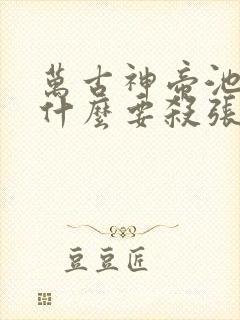 萬古神帝池
什麼要殺張
豆豆匠